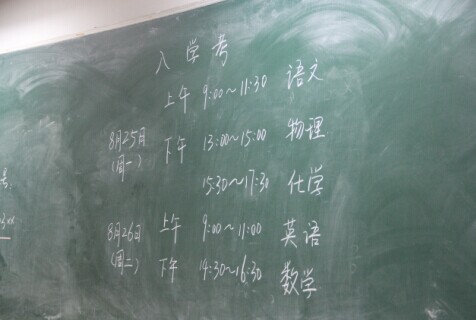 入学考
上午 9:00~11:30 语文
8月25日 下午 13:00~15:00 物理
(周一)
15:30~17:30 化学
8月26日 上午 9:00~11:00 英语
(周二) 下午 14:30~16:30 数学
号